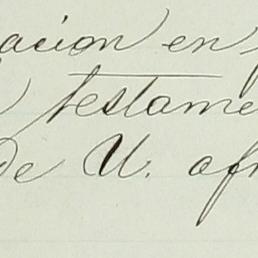 acion en
testame
de U. afm